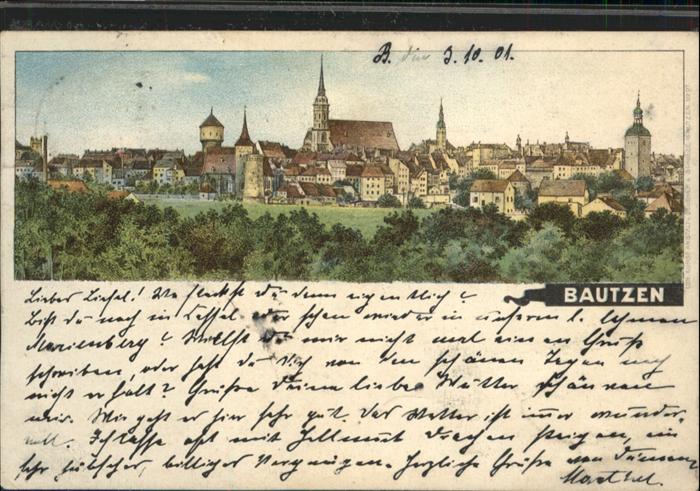 B. den 3.10.01.
BAUTZEN
Liebes Liesel! Wo steckst du denn eigentlich?
Bist du noch in Cassel oder schon wieder in unserem l.
Marienberg? Willst du mir nicht mal einen Gruß
schreiben, oder hast du dich von den schönen Tagen noch
nicht erholt? Grüße deine liebe Mutter schön von
mir. Mir geht es hier sehr gut. Das Wetter ist immer wunder-
voll. Ich lasse oft mit Hellmut Drachen steigen, ein
sehr hübsches, billiges Vergnügen. Herzliche Grüße von